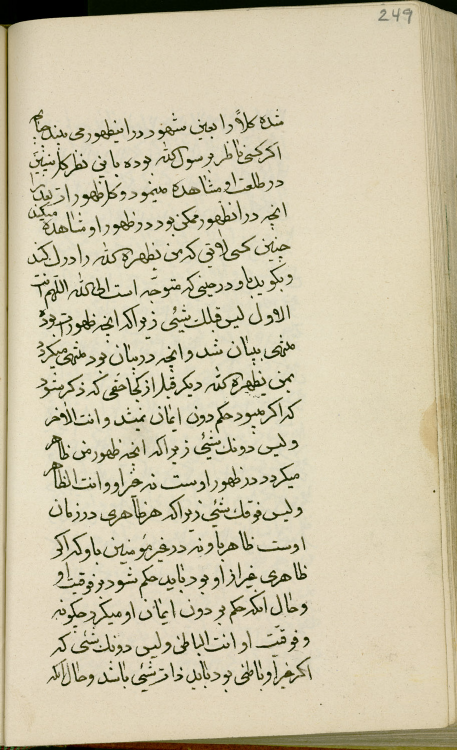 249
شده كلاً را بعين شهود در اين ظهور مى بيند چنانچه
اگر كسى ناظر بر رسول الله بوده باين نظر كل نبيين
در طلعت او مشاهده مينمود و كل ظهور از بعد
انچه در ان ظهور ممكن بود در ظهور او مشاهده ميكند
چنين كسى لايق كه من يظهره الله را درك كند
و بگويد باو در حينى كه متوجه است الى الله اللهم انت
الاول ليس قبلك شئى زيرا كه انچه ظهور بود
منتهى ببيان شد و انچه در بيان بود منتهى ميگردد
بمن يظهره الله ديگر قبل از كجا حقى كه ذكر شود
كه اگر ميبود حكم دون ايمان نميشد و انت الاخر
و ليس دونك شئى زيرا كه انچه ظهور من ظاهر
ميگردد در ظهور اوست نه غير او و انت الظاهر
و ليس فوقك شئى زيرا كه هر ظاهرى در زمان
اوست ظاهر باو نه در غير مؤمنين باو كه اگر
ظاهرى غير از او بود نبايد حكم شود بر فوقيت او
و حال انكه حكم بر دون ايمان او ميگردد چگونه
و فوقيت او انت الباطن و ليس دونك شئى كه
اگر غير او باطنى بود بايد ذات شئى باشد و حال انكه